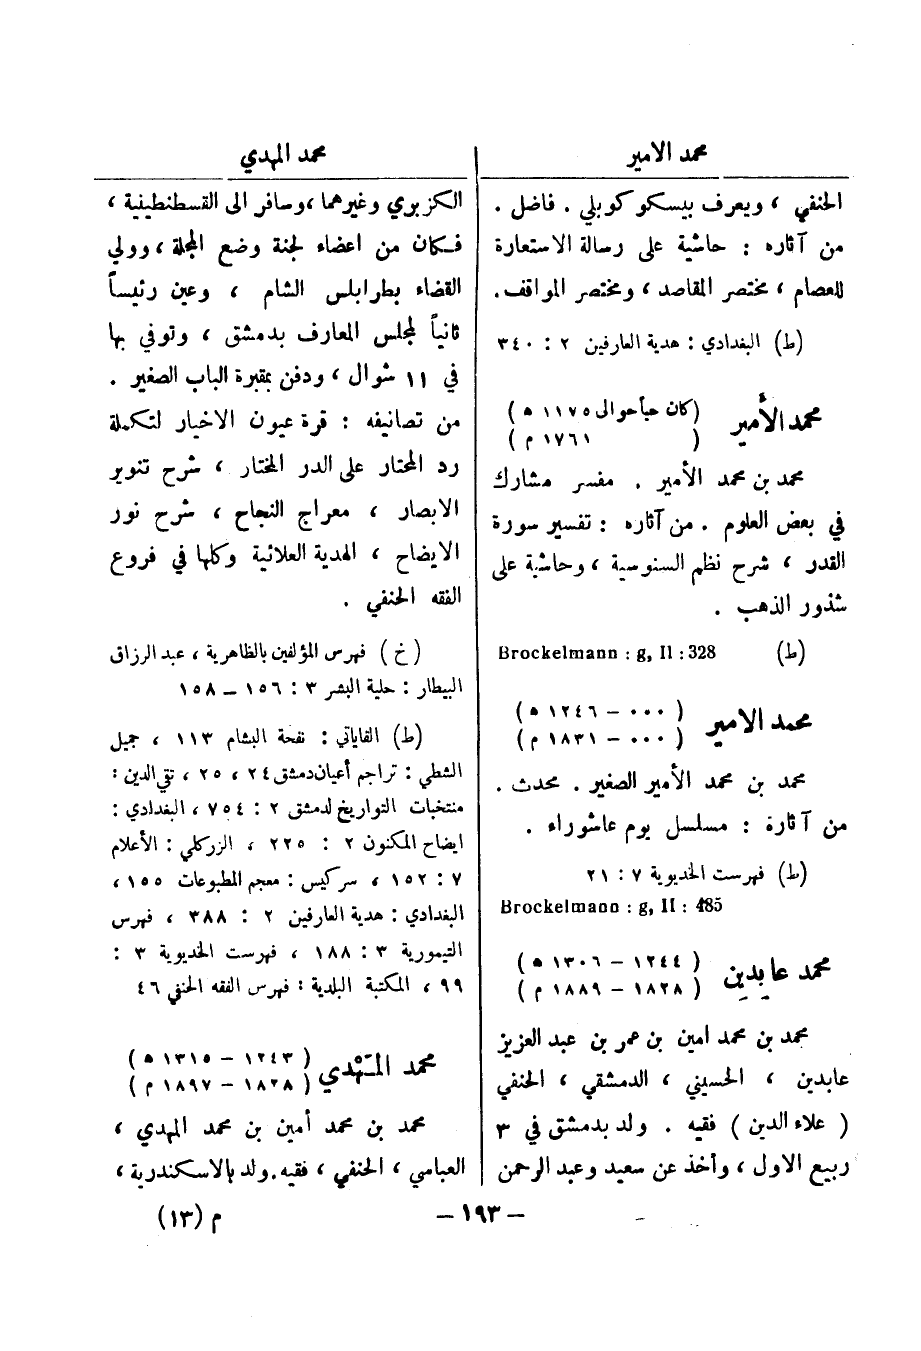 محمد الامير
الحنفي ، ويعرف بيسكو كوبلي . فاضل .
من آثاره : حاشية على رسالة الاستعارة
للعصام ، مختصر المقاصد ، ومختصر المواقف.
(ط) البغدادي : هدية العارفين ٢ : ٣٤٠
محمد الأمير (كان حياً حوالى ١١٧٥ ه)
( ١٧٦١ م)
محمد بن محمد الأمير . مفسر مشارك
في بعض العلوم . من آثاره : تفسير سورة
القدر ، شرح نظم السنوسية ، وحاشية على
شذور الذهب .
(ط) Brockelmann : g, II : 328
محمد الامير (٠٠٠ - ١٢٤٦ ه)
(٠٠٠ - ١٨٣١ م)
محمد بن محمد الأمير الصغير . محدث .
من آثارة : مسلسل يوم عاشوراء .
(ط) فهرست الخديوية ٧ : ٢١
Brockelmann : g, II : 485
محمد عابدين (١٢٤٤ - ١٣٠٦ ه)
(١٨٢٨ - ١٨٨٩ م)
محمد بن محمد امين بن عمر بن عبد العزيز
عابدين ، الحسيني ، الدمشقي ، الحنفي
( علاء الدين ) فقيه . ولد بدمشق في ٣
ربيع الاول ، وأخذ عن سعيد وعبد الرحمن
محمد المهدي
الكزبري وغيرهما ،وسافر الى القسطنطينية ،
فكان من اعضاء لجنة وضع المجلة ، وولي
القضاء بطرابلس الشام ، وعين رئيساً
ثانياً لمجلس المعارف بدمشق ، وتوفي بها
في ١١ شوال ، ودفن بمقبرة الباب الصغير .
من تصانيفه : قرة عيون الاخيار لتكملة
رد المحتار على الدر المختار ، شرح تنوير
الابصار ، معراج النجاح ، شرح نور
الايضاح ، الهدية العلائية وكلها في فروع
الفقه الحنفي .
(خ) فهرس المؤلفين بالظاهرية ، عبد الرزاق
البيطار : حلية البشر ٣ : ١٥٦ - ١٥٨
(ط) القاياتي : نفحة البشام ١١٣ ، جميل
الشطي : تراجم أعيان دمشق ٢٤ ، ٢٥ ، تقي الدين :
منتخبات التواريخ لدمشق ٢ : ٧٥٤ ، البغدادي :
ايضاح المكنون ٢ : ٢٢٥ ، الزركلي : الأعلام
٧ : ١٥٢ ، سركيس : معجم المطبوعات ١٥٥ ،
البغدادي : هدية العارفين ٢ : ٣٨٨ ، فهرس
التيمورية ٣ : ١٨٨ ، فهرست الخديوية ٣ :
٩٩ ، المكتبة البلدية : فهرس الفقه الحنفي ٤٦
محمد المَهْدي (١٢٤٣ - ١٣١٥ ه)
(١٨٢٨ - ١٨٩٧ م)
محمد بن محمد أمين بن محمد المهدي ،
العباسي ، الحنفي ، فقيه.ولد بالاسكندرية ،
- ١٩٣ -
م (١٣)